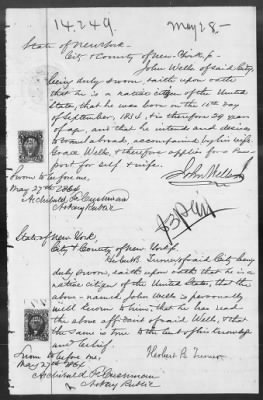 14,249. May 28.-
State of New York
City & County of New York, ss
John Wells of said City
being duly sworn, saith upon oath
that he is a native citizen of the United
States, that he was born on the 10th day
of September, 1834, & is therefore 29 years
of age, and that he intends and desires
to travel abroad, accompanied by his wife
Grace Wells, & therefore applies for a pass
port for self & wife.
Sworn to before me, John Wells
May 27th 1864
Archibald F. Cushman
Notary Public
State of New York,
City & County of New York, ss.
Herbert B. Turner of said City being
duly sworn, saith upon oath that he is a
native citizen of the United States, that the
above-named John Wells is personally
well known to him, that he has read
the above affidavit of said Wells, & that
the same is true to the best of his knowledge
and belief.
Sworn to before me,
May 27th 1864 Herbert B. Turner
Archibald F. Cushman
Notary Public